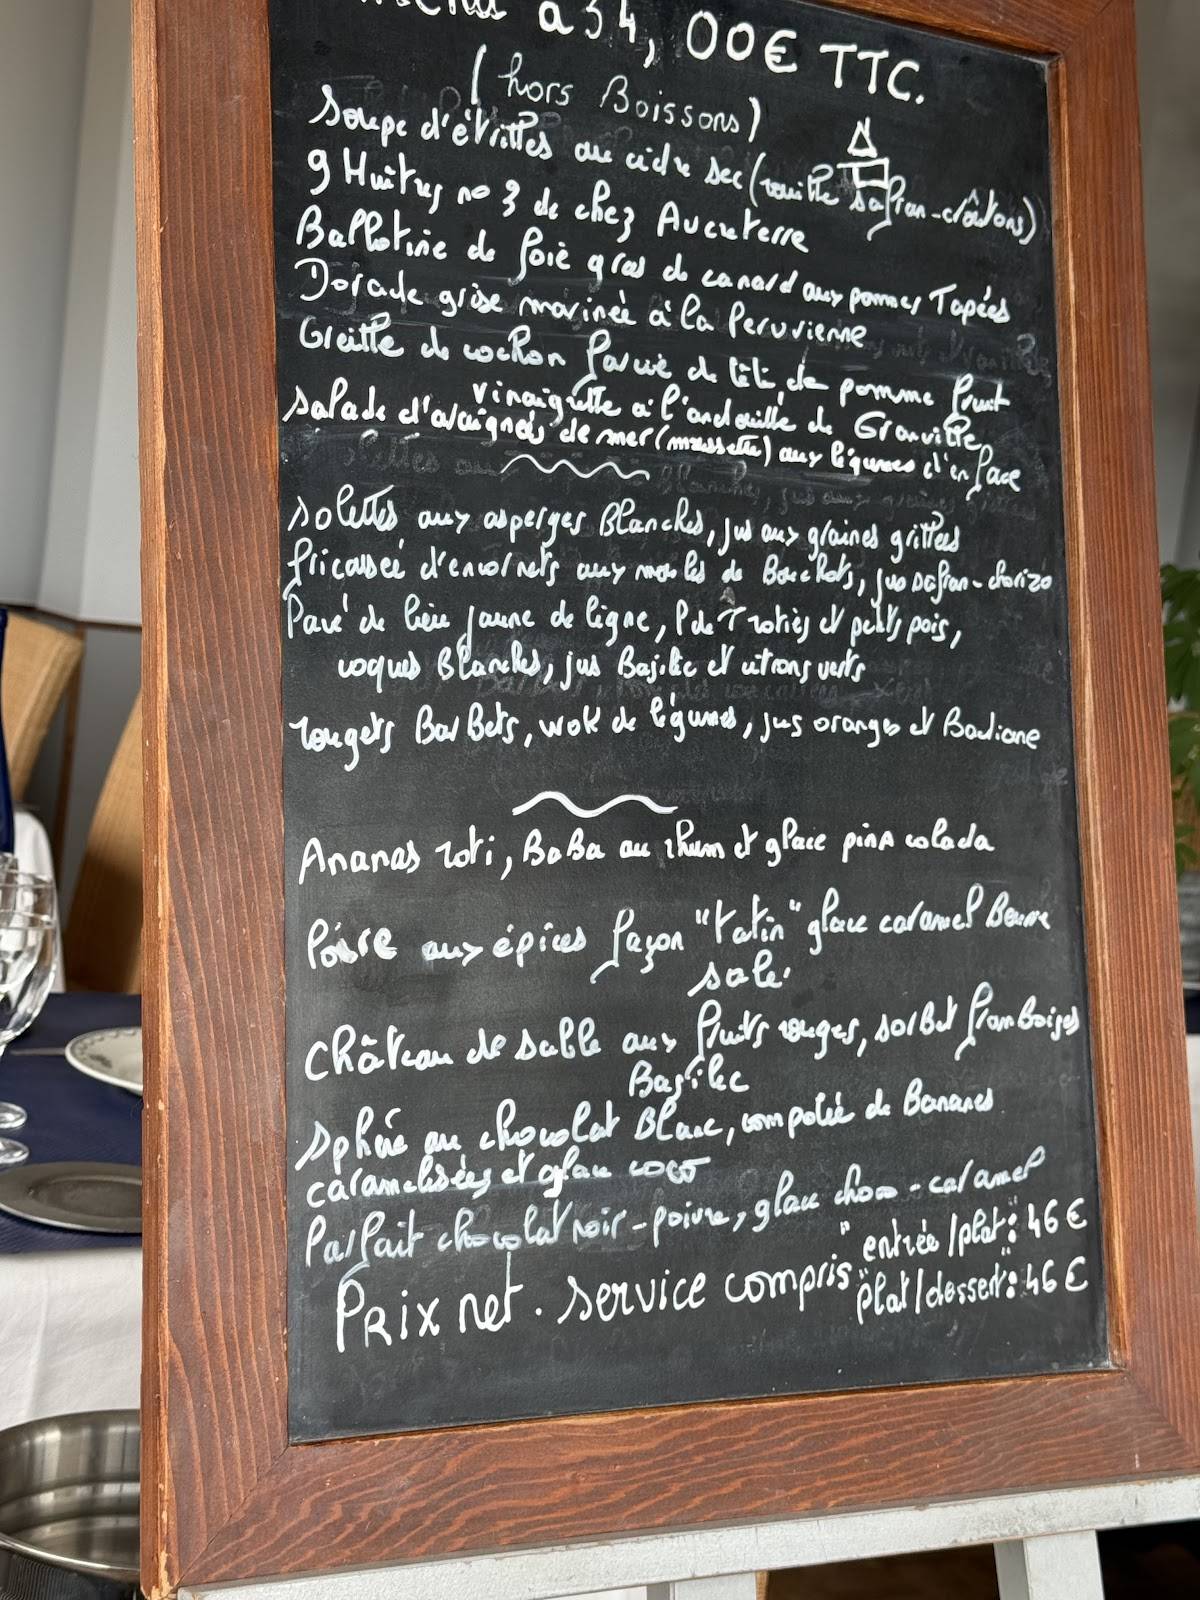 menu à 54,00€ TTC.
(hors Boissons)
Soupe d'étrilles au cidre sec (rouille safran-croûtons)
9 Huîtres no 3 de chez Aucuterre
Ballotine de foie gras de canard aux pommes Tapées
Dorade grise marinée à la Peruvienne
Greille de cochon farcie de tête de pomme fruit
vinaigrette à l'andouille de Granville
salade d'araignée de mer (moussette) aux légumes d'en face
solettes aux asperges Blanches, jus aux graines grillées
fricassée d'encornets aux moules de Bouchots, jus safran-chorizo
Pavé de lieu jaune de ligne, P de T roties et petits pois,
coques Blanches, jus Basilic et citrons verts
rougets BarBets, wok de légumes, jus oranges et Badiane
Ananas roti, BaBa au rhum et glace pina colada
Poire aux épices façon "tatin" glace caramel Beurre
salé
Château de sable aux fruits rouges, sorbet framBoises
Basilic
Sphère au chocolat Blanc, compotée de Bananes
caramelisées et glace coco
Parfait chocolat noir-poivre, glace choco-caramel
"entrée/plat": 46€
Prix net. Service compris "plat/dessert": 46€